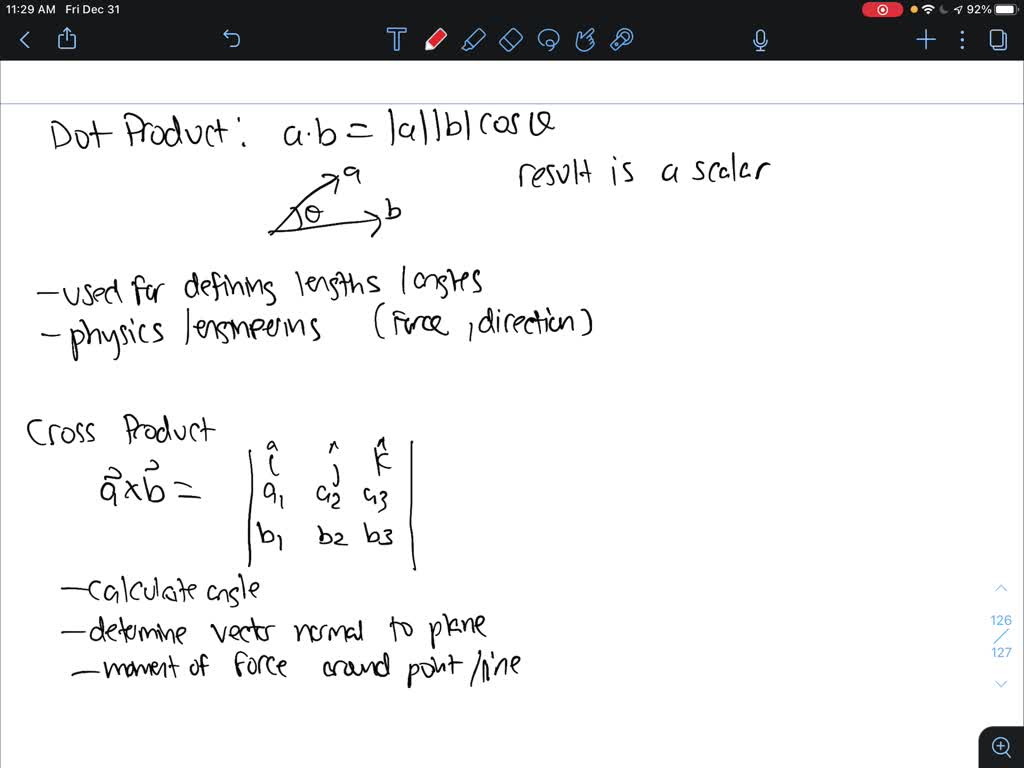 11:29 AM Fri Dec 31
92%
T
Dot Product: a·b = |a||b| cos θ
result is a scalar
a
θ
b
- used for defining lengths / angles
- physics / engineering (Force, direction)
Cross Product
a⃗ x b⃗ =
î ĵ k̂
a₁ a₂ a₃
b₁ b₂ b₃
- calculate angle
- determine vector normal to plane
- moment of force around point / line
126
/
127